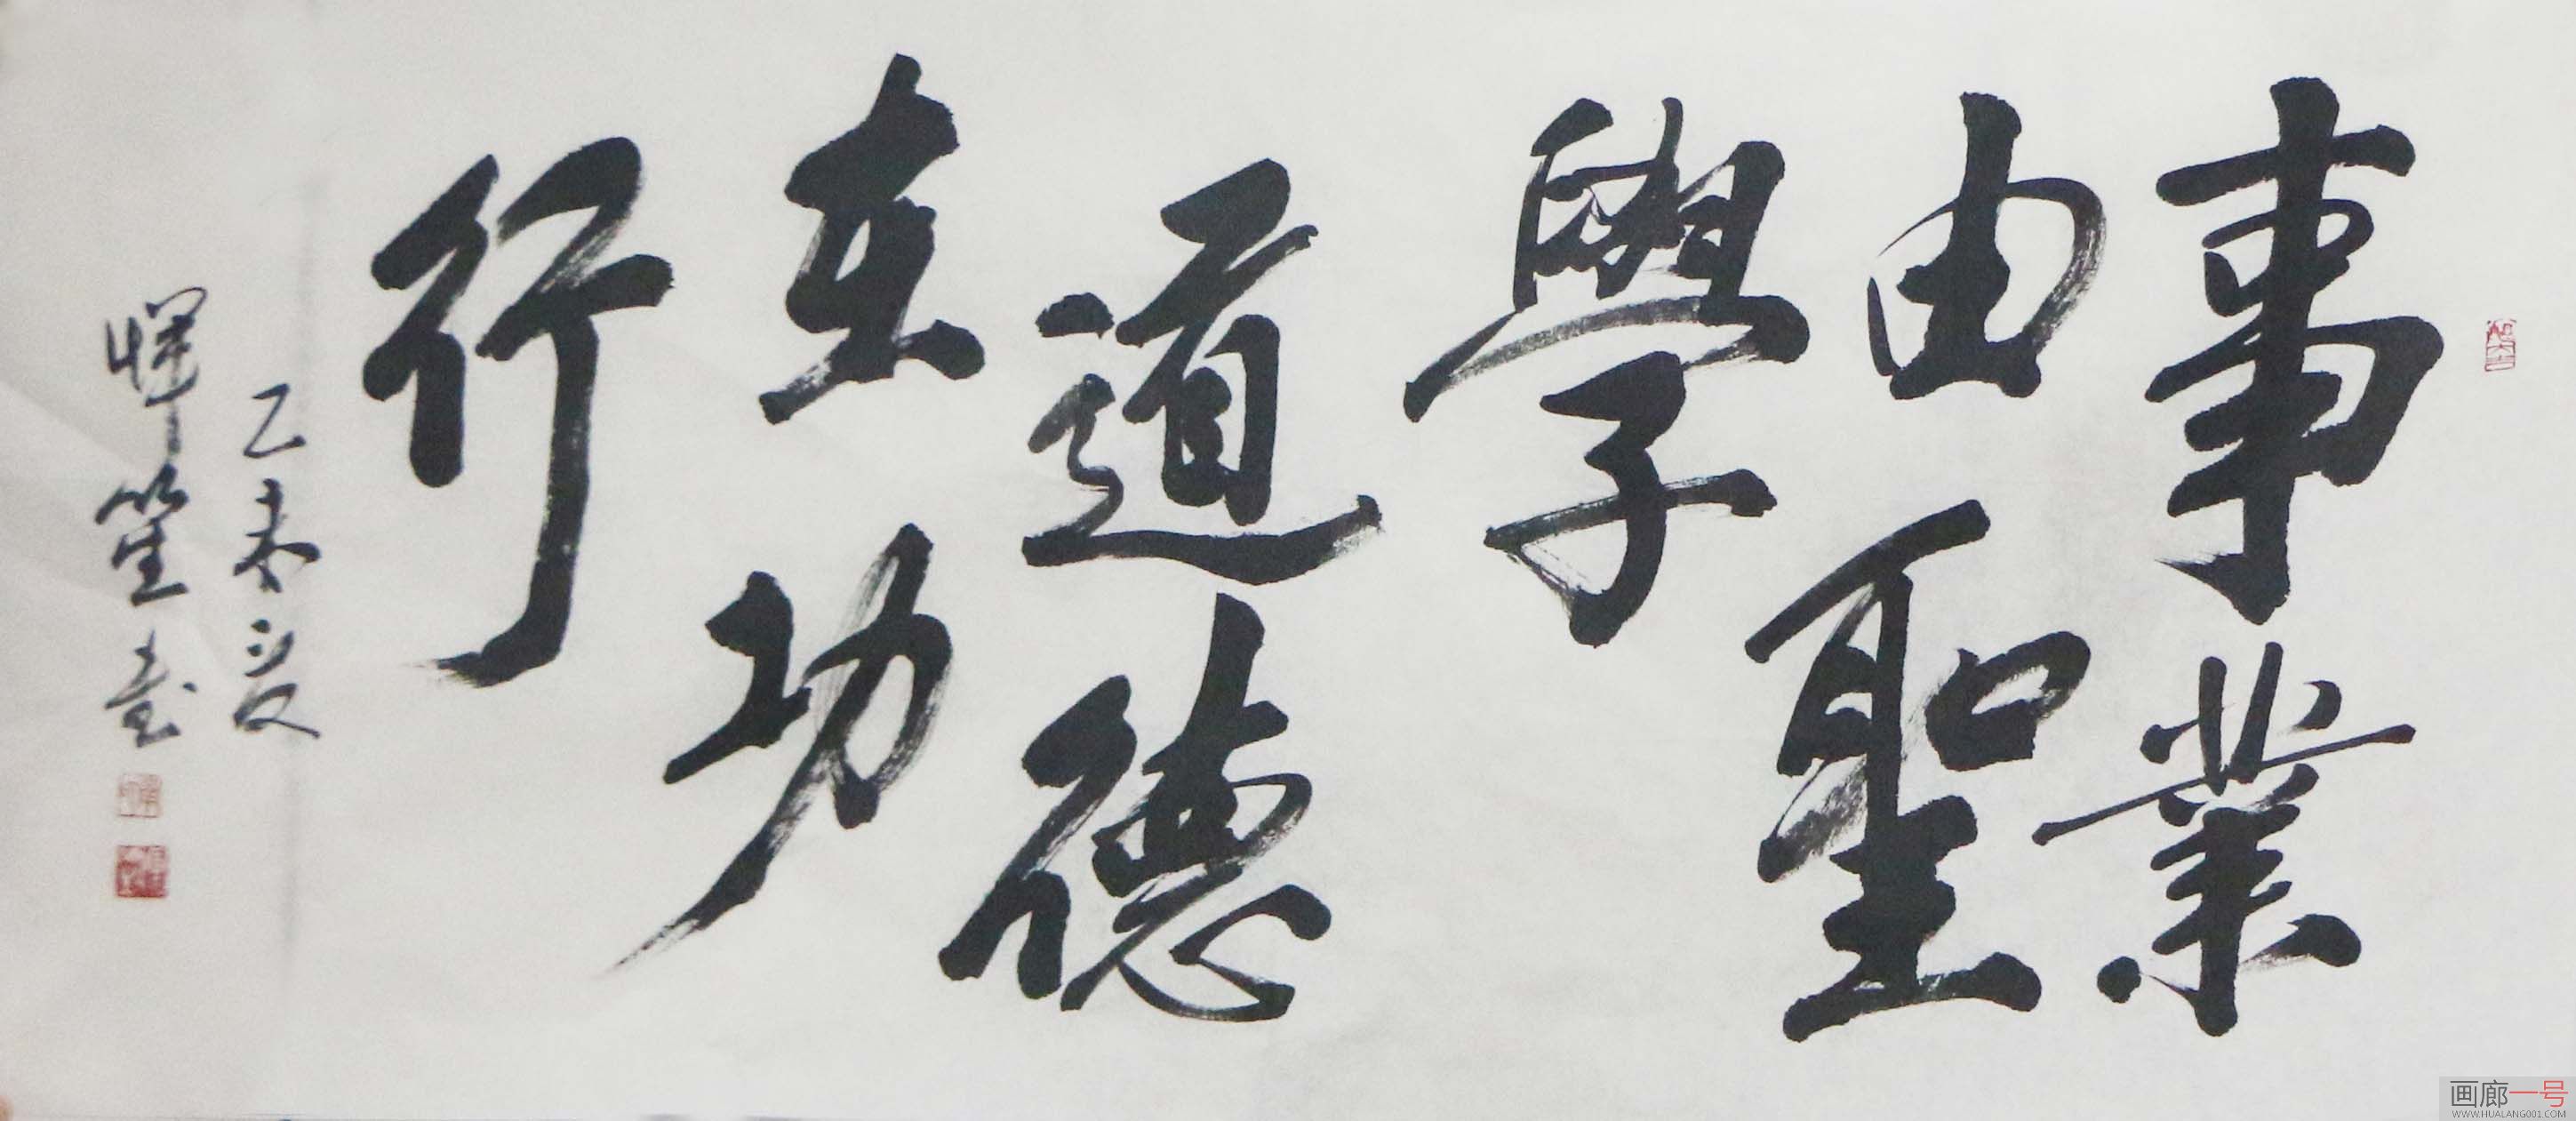 事業
由聖
學
道德
在功
行
乙未夏
画廊一号
WWW.HUALANG001.COM